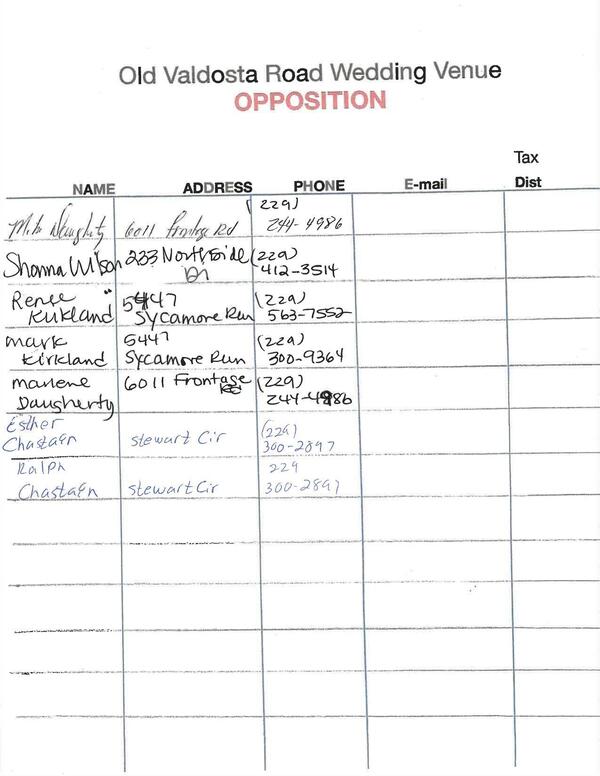 Old Valdosta Road Wedding Venue
OPPOSITION
Tax
NAME ADDRESS PHONE E-mail Dist
(229)
Daughtry 6011 Frontage Rd 244-4986
Shonna Wilson 233 Northside (229)
Dr 412-3514
Renee 5447 (229)
Kirkland Sycamore Run 563-7552
mark 5447 (229)
Kirkland Sycamore Run 300-9364
marlene 6011 Frontage (229)
Daugherty Rd 244-4986
Esther
Chastain stewart Cir (229)
300-2897
Ralph 229
Chastain stewart Cir 300-2897